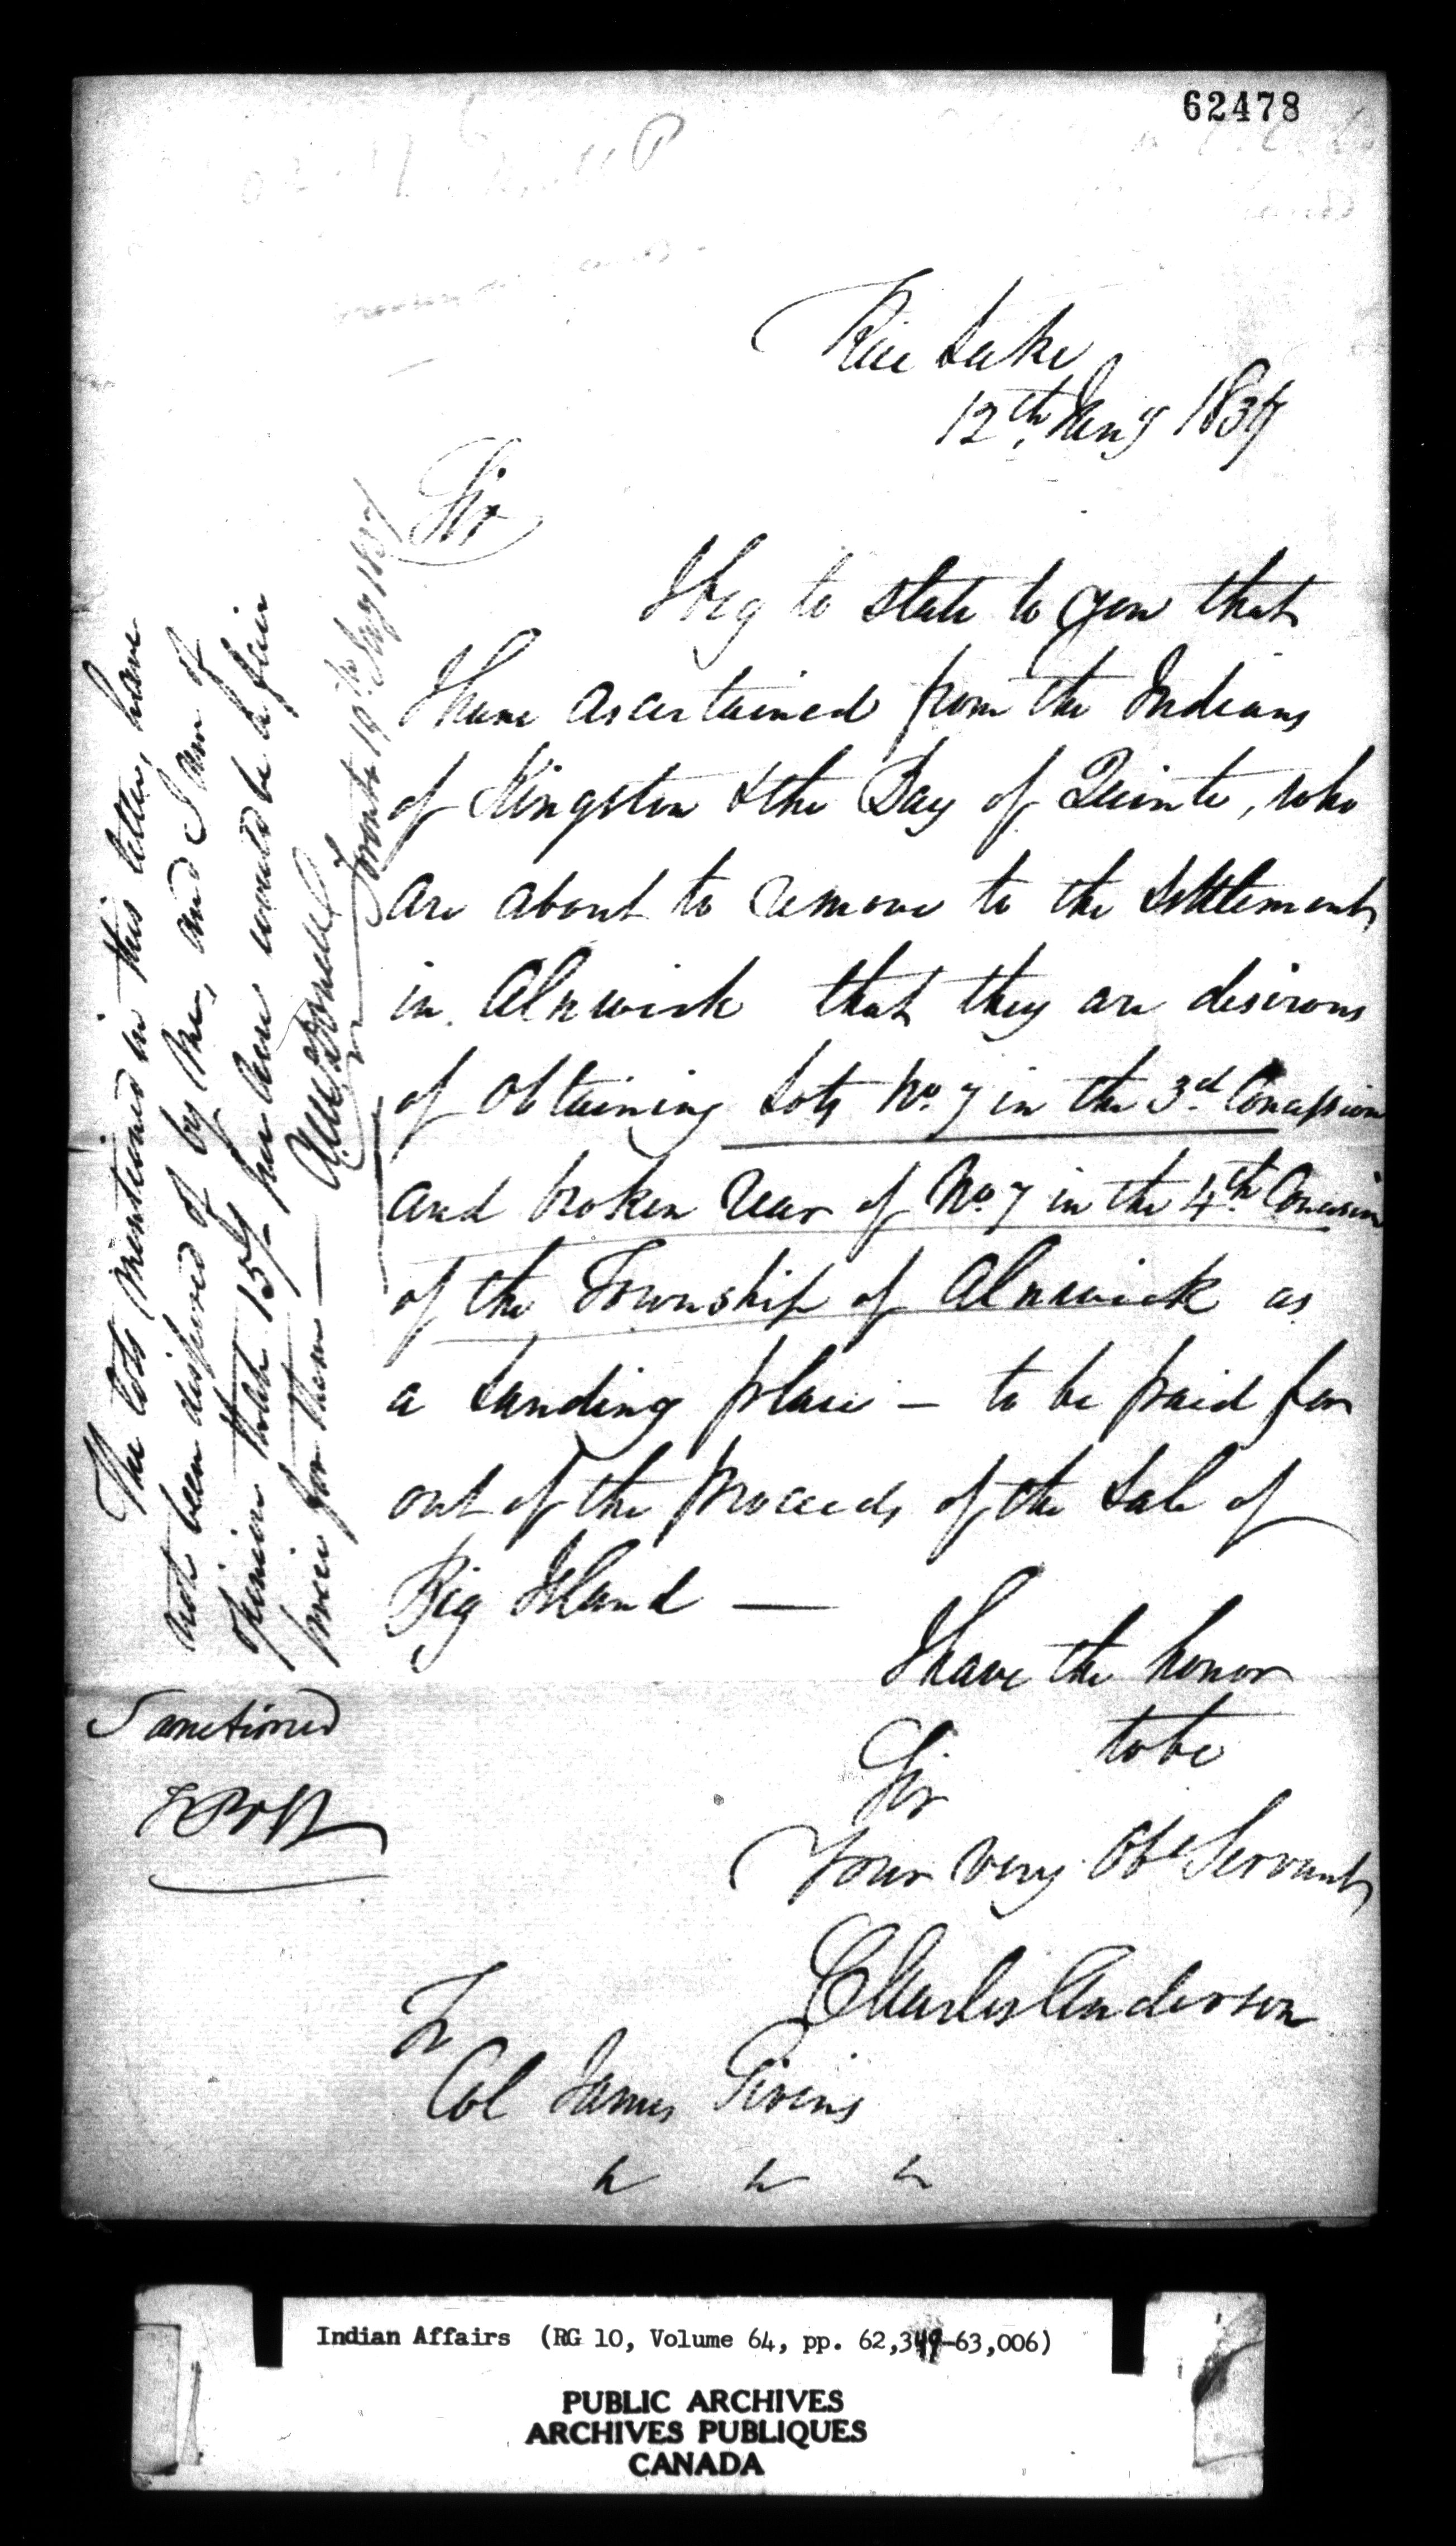 62478
Rice Lake
12th Jany 1837
Sir
I beg to state to you that
I have ascertained from the Indians
of Kingston & the Bay of Quinte, who
are about to remove to the Settlement
in Alnwick that they are desirous
of obtaining Lots No. 7 in the 3d. Concession
and broken rear of No 7 in the 4th Concession
of the Township of Alnwick as
a Landing place — to be paid for
out of the proceeds of the Sale of
Big Island —
I have the honor
to be
Sir
Your very Obt Servant
Charles Anderson
To
Col James Givins
The lots mentioned in this letter, have
not been disposed of by me, and I am of
opinion that 15/- per Acre would be a fair
price for them —
Toronto 19th Jany 1837
Sanctioned
FBH
Indian Affairs (RG 10, Volume 64, pp. 62,349-63,006)
PUBLIC ARCHIVES
ARCHIVES PUBLIQUES
CANADA